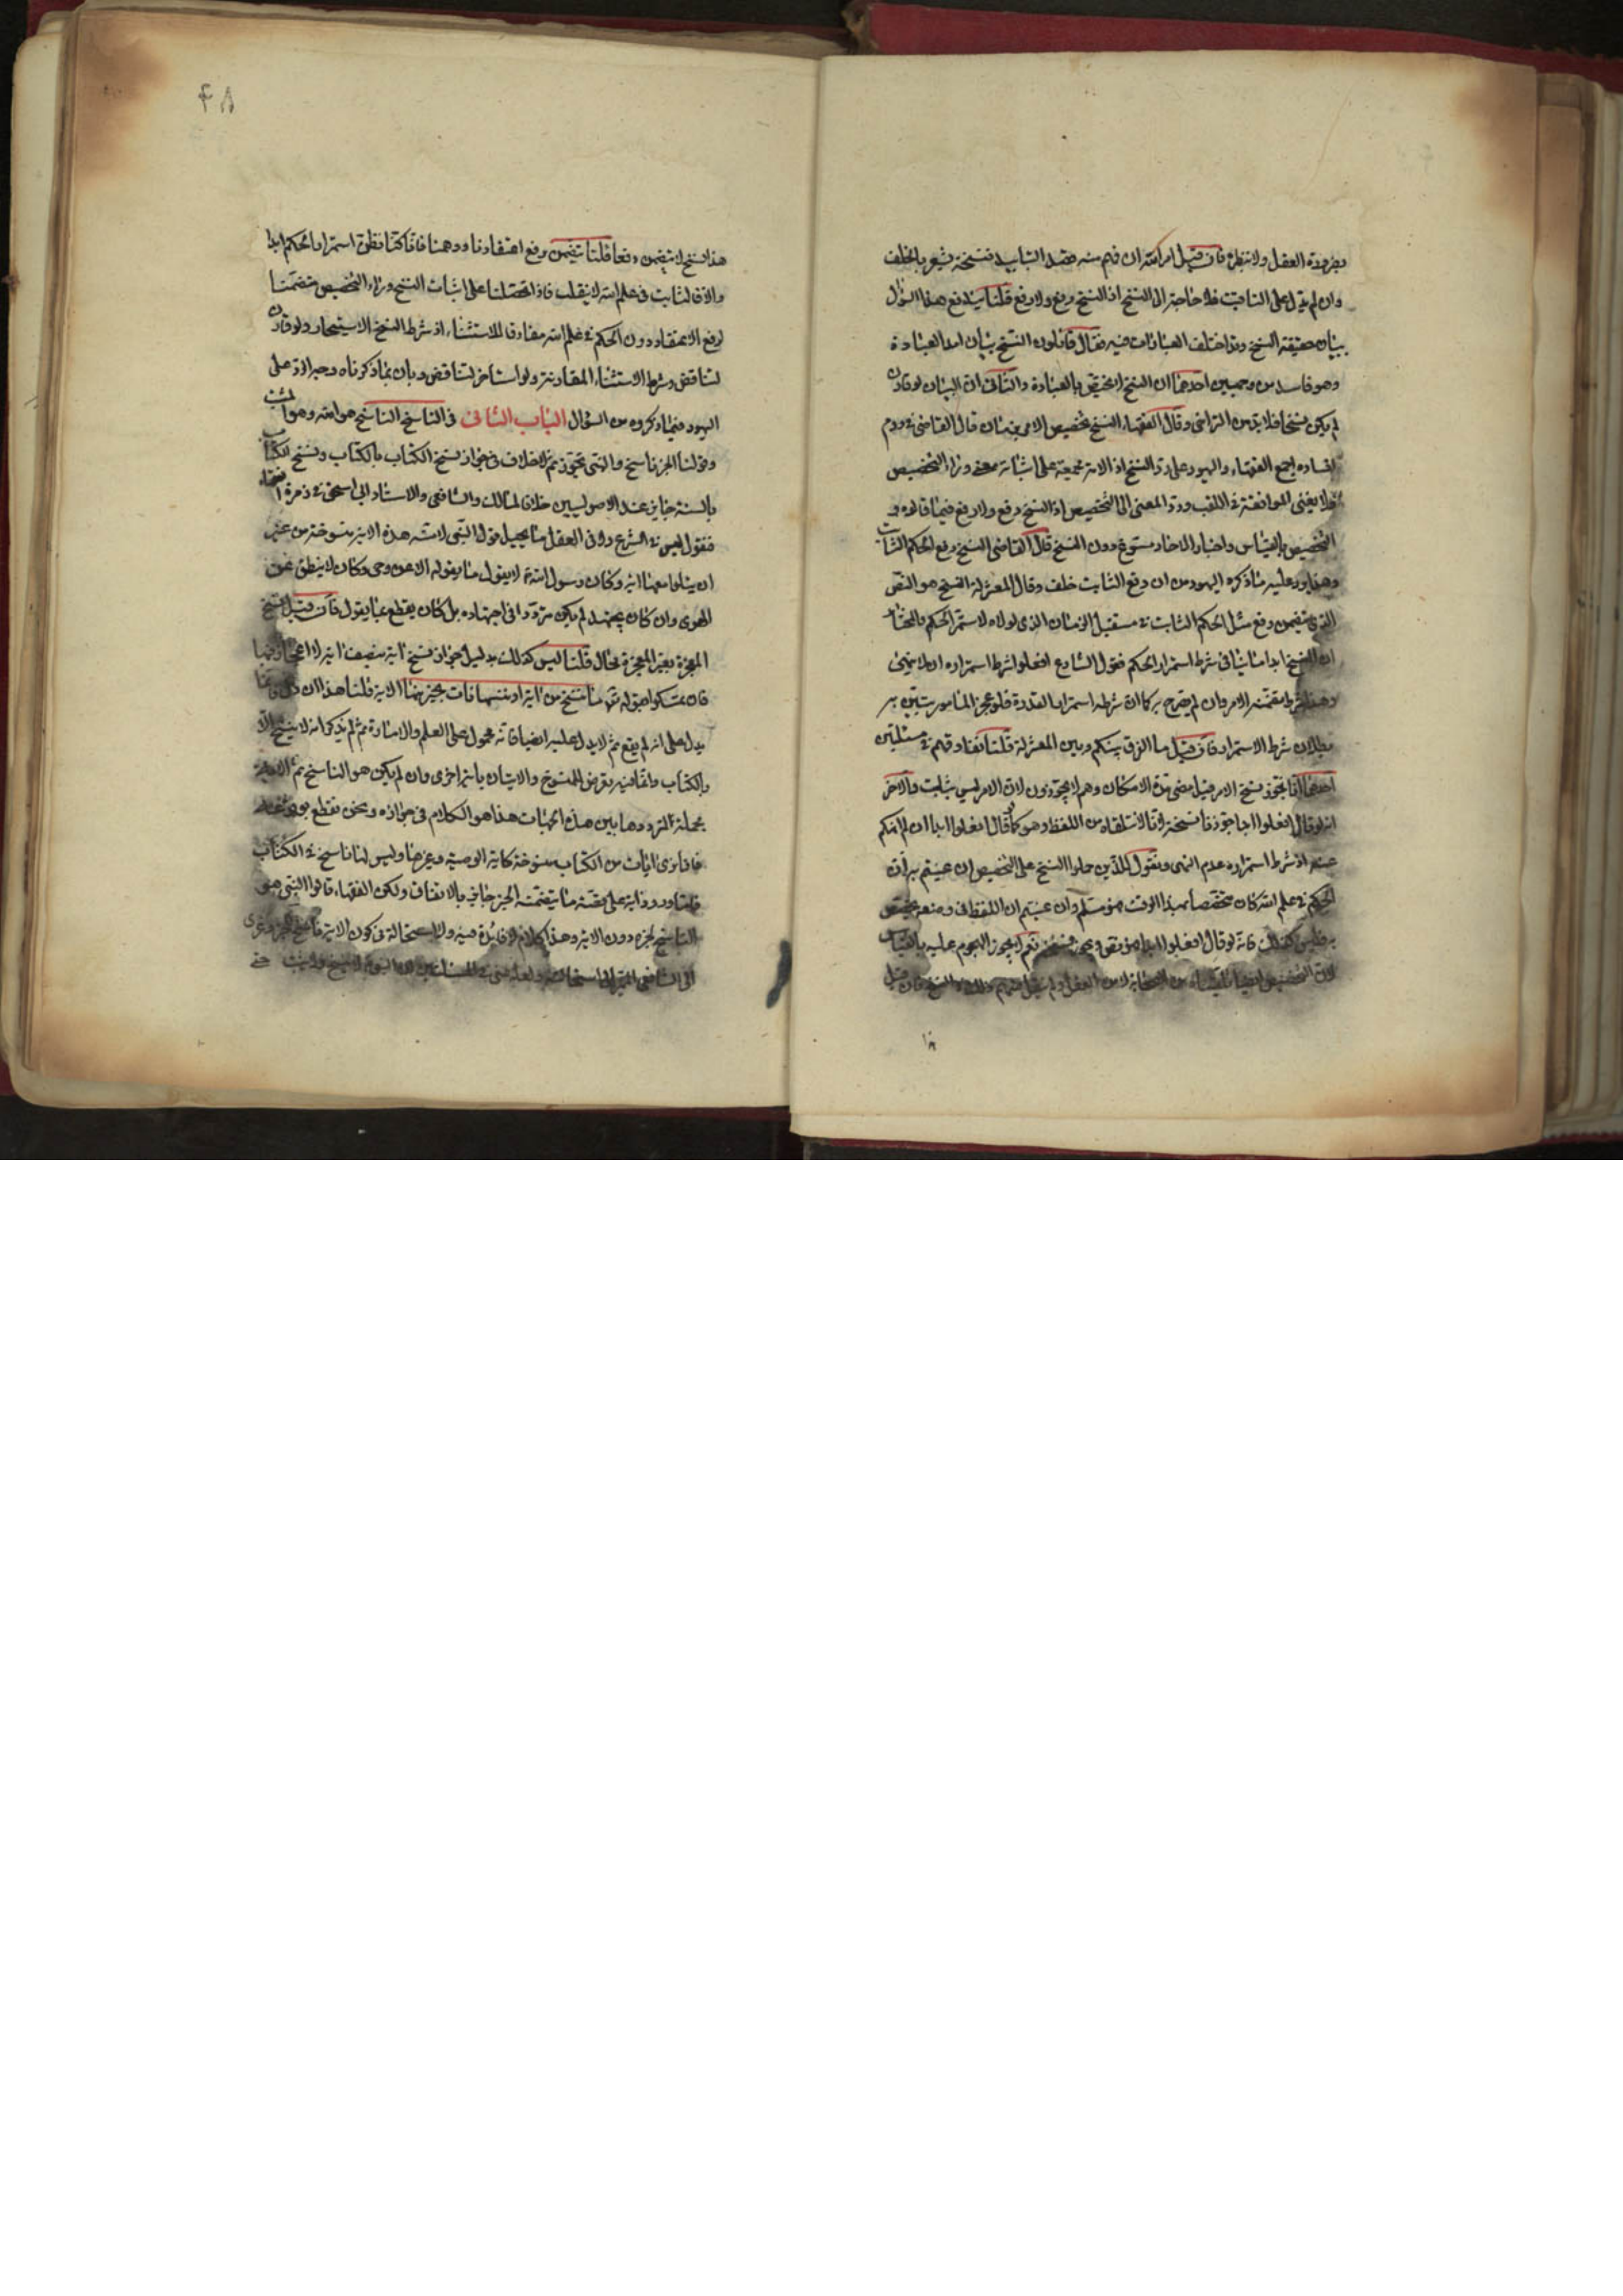 بضرورة العقل ولا بنظره فان قيل امر الله ان فهم منه قصد التابيد فنسخه يشعر بالخلف
وان لم يدل على التاقيت فلا حاجة الى النسخ اذ النسخ رفع ولا رفع قلنا يندفع هذا السؤال
ببيان حقيقة النسخ وقد اختلف العبارات فيه فقال قائلون النسخ بيان امد العبادة
وهو فاسد من وجهين احدهما ان النسخ لا يختص بالعبادة والثاني ان البيان لو قارن
لم يكن نسخا فلا بد من التراخي وقال الفقهاء النسخ تخصيص الامر بزمان قال القاضي في روم
افساده اجمع الفقهاء واليهود على رد النسخ اذ الامة مجمعة على اثباته معنى وراء التخصيص
فلا يغني الموافقة في اللقب ورد المعنى الى التخصيص اذ النسخ رفع ولا رفع فيما قالوه و
التخصيص بالقياس واخبار الاحاد مسوغ دون النسخ قال القاضي النسخ رفع الحكم الثابت
وهذا يرد عليه ما ذكره اليهود من ان رفع الثابت خلف وقال المعتزلة النسخ هو النص
الذي يتضمن رفع مثل الحكم الثابت في مستقبل الزمان الذي لولاه لاستمر الحكم والمختار
ان النسخ ابدا ما ينافي شرط استمرار الحكم فقول الشارع افعلوا شرط استمراره ان لا ينهى
وهذا شرط تضمنه الامر وان لم يصرح به كما ان شرطه استمرار القدرة فلو عجز المامور تبين به
بطلان شرط الاستمرار فان قيل ما الفرق بينكم وبين المعتزلة قلنا نفارقهم في مسئلتين
احدهما انا نجوز نسخ الامر قبل مضي مدة الامكان وهم لا يجوزون لان الامر ليس بثابت والاخر
انه لو قال افعلوا ابدا جوزنا نسخه فانا لا نتلقاه من اللفظ وهو كما قال افعلوا ابدا ان لم انهكم
عنه اذ شرط استمراره عدم النهي ونقول للذين حملوا النسخ على التخصيص ان عنيتم به ان
الحكم في علم الله كان مختصا بهذا الوقت فهو مسلم وان عنيتم ان اللفظ في وضعه يختص
به فليس كذلك فانه لو قال افعلوا ابدا فهو نص ويجوز نسخه نعم لا يجوز الهجوم عليه بالقياس
هذا نسخ لا يتضمن رفعا قلنا يتضمن رفع اعتقادنا ووهمنا فانا كنا نظن استمرار الحكم ابدا
والا فالثابت في علم الله لا ينقلب فاذا تحصلنا على اثبات النسخ وراء التخصيص متضمنا
لرفع الاعتقاد دون الحكم في علم الله مفارقا للاستثناء اذ شرط النسخ الاستيخار ولو قارن
لتناقض وشرط الاستثناء المقارنة ولو استاخر لتناقض وبان بما ذكرناه وجه الرد على
اليهود فيما ذكروه من السؤال الباب الثاني في الناسخ الناسخ هو الله وهو المثبت
وقولنا الخبر ناسخ والنبي تجوز ثم لا خلاف في جواز نسخ الكتاب بالكتاب ونسخ الكتاب
بالسنة جايز عند الاصوليين خلافا لمالك والشافعي والاستاد ابي اسحق في زمرة الفقهاء
فنقول ليس في الشرع ولا في العقل ما يحيل قول النبي لامته هذه الاية منسوخة من غير
ان يتلوا معها اية وكان رسول الله لا يقول ما يقوله الا عن وحي وكان لا ينطق عن
الهوى وان كان يجتهد لم يكن مترددا في اجتهاده بل كان يقطع بما يقول فان قيل نسخ
المعجزة بغير المعجزة محال قلنا ليس كذلك بدليل جواز نسخ اية بنصف اية لا اعجاز فيها
فان تمسكوا بقوله تعالى ما ننسخ من اية او ننسها نات بخير منها الاية قلنا هذا ان دل فانما
يدل على انه لم يقع ثم لا يدل عليه ايضا فانه محمول على العلم والامارة ثم لم يذكر انه لا ينسخ الا
بالكتاب وانما فيه تعرض للمنسوخ والاتيان باية اخرى وان لم يكن هو الناسخ ثم الاية
بجملة التردد ما بين هذه الجهات هذا هو الكلام في جوازه ونحن نقطع بوقوعه
فانا نرى ايات من الكتاب منسوخة كاية الوصية وغيرها وليس لنا ناسخ في الكتاب
فلنا ورود اية على وفق ما يتضمنه الخبر جايز بالاتفاق ولكن الفقهاء قالوا النبي هو
الناسخ لخبره دون الاية وهذا كلام لا فائدة فيه ولا استحالة في كون الاية ناسخة للخبر وعزى
الى الشافعي المصير الى استحالته ولعله عنى في المسئلتين